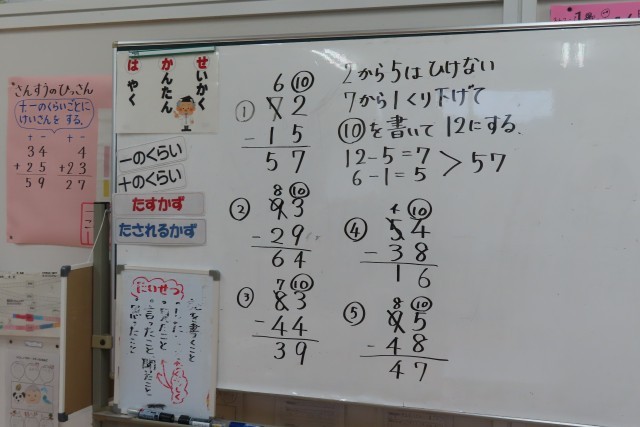 さんすうのひっさん
十一のくらいごとに
けいさんを する。
+ -
34
+25
59
+ -
4
+23
27
せいかく
かんたん
はやく
一のくらい
十のくらい
たすかず
たされるかず
にいせつ
を書くこと
見たこと
言ったこと 聞いたこと
思ったこと
① 6 ⑩
72
-15
57
2から5は ひけない
7から1くり下げて
⑩を書いて 12にする。
12-5=7
6-1=5
> 57
② 8 ⑩
93
-29
64
③ 7 ⑩
83
-44
39
④ 4 ⑩
54
-38
16
⑤ 8 ⑩
95
-48
47